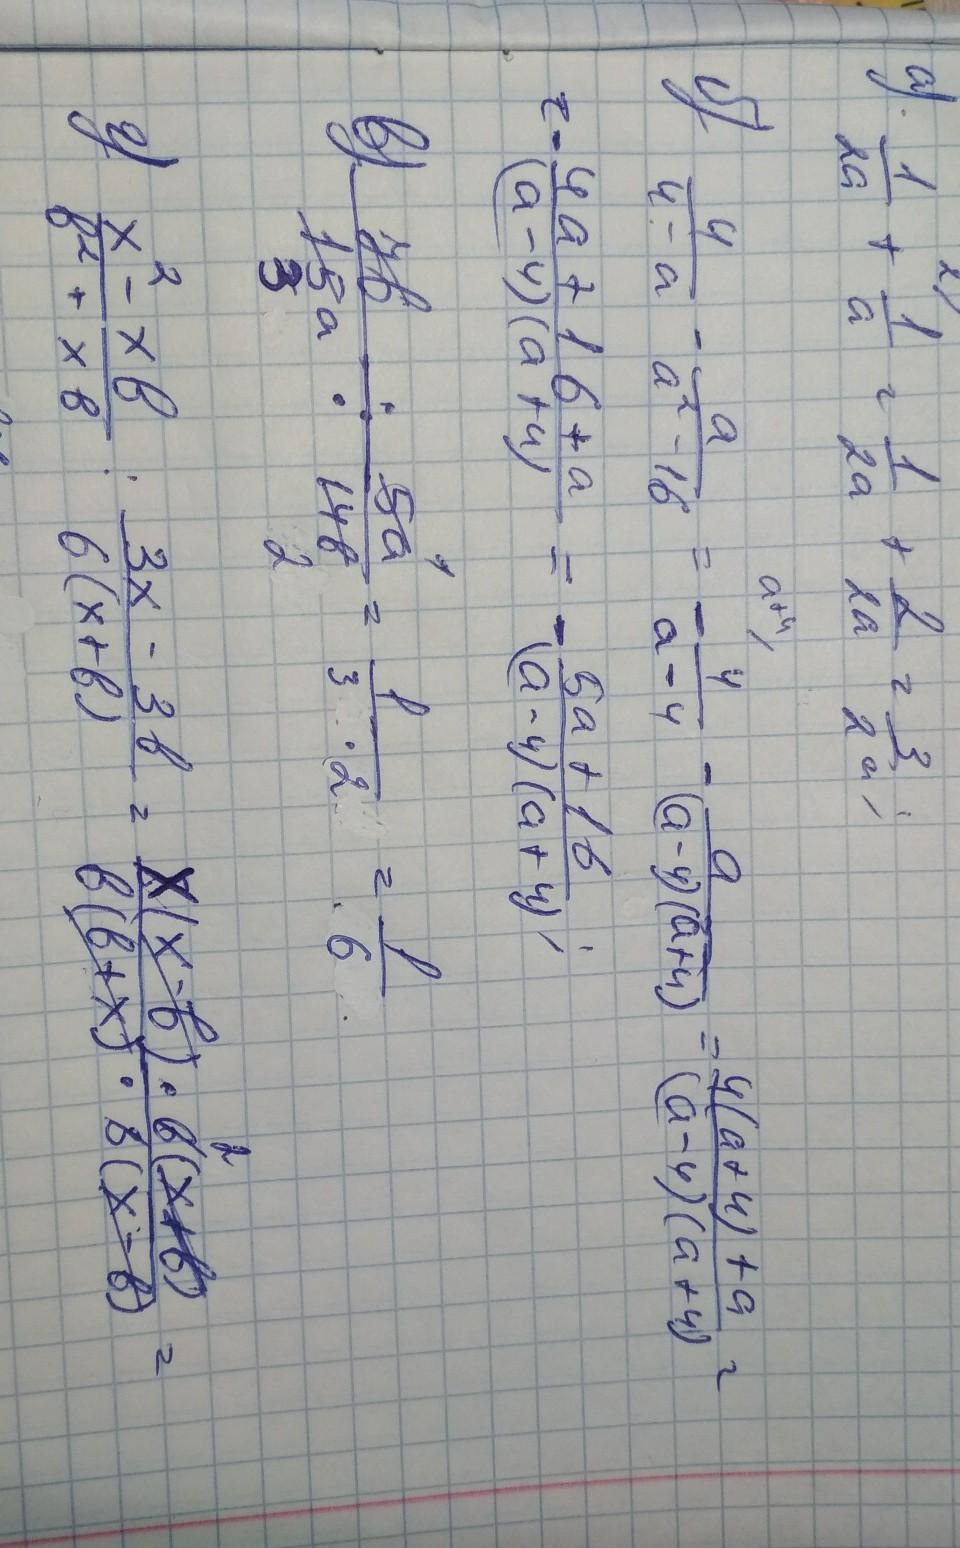 а) 1/2a + 1/a = 1/2a + 2/2a = 3/2a;
б) 4/(4-a) - a/(a²-16) = -4/(a-4) - a/((a-4)(a+4)) = -(4(a+4)+a)/((a-4)(a+4)) =
= -(4a+16+a)/((a-4)(a+4)) = -(5a+16)/((a-4)(a+4));
в) (7b · 5a)/(15a · 14b) = 1/(3·2) = 1/6
г) (x²-xb)/(b²+xb) : (3x-3b)/(6(x+b)) = (x(x-b) · 6(x+b))/(b(b+x) · 3(x-b)) =